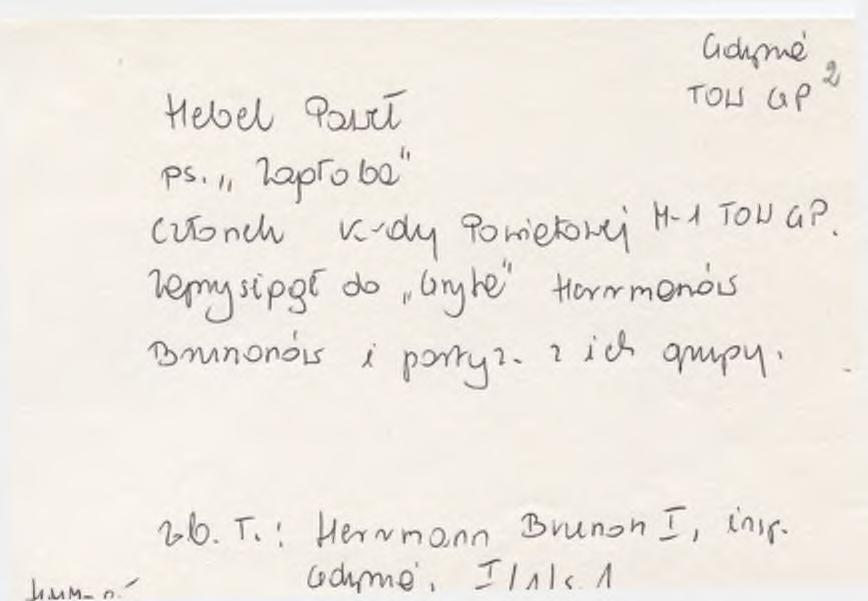 Gdynia 2
TOW GP
Hebel Paweł
ps. „Zagłoba"
członek K-dy Powiatowej M-1 TOW GP.
Zaprzysiągł do „Gryfa" Herrmanów
Brunonów i party z. z ich grupy.
zb. T.: Herrmann Brunon I, insp.
Gdynia, I/1/s. 1